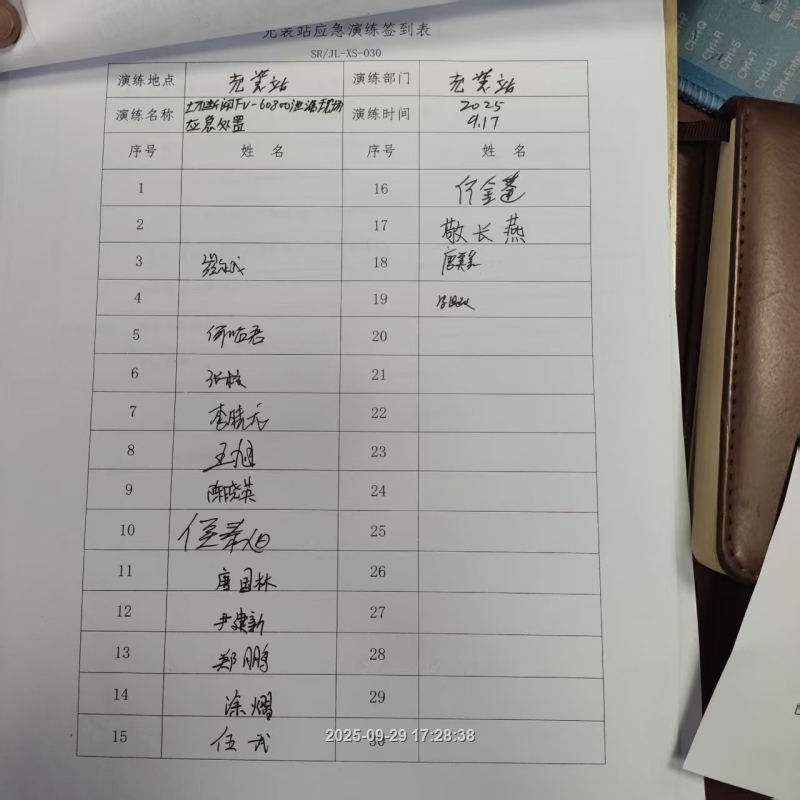 充装站应急演练签到表
SR/JL-XS-030
演练地点 充装站 演练部门 充装站
演练名称 切断阀FV-60800泄漏现场应急处置 演练时间 2025 9.17
序号 姓名 序号 姓名
1 16
2 17 敬长燕
3 18
4 19
5 何临君 20
6 21
7 李晓元 22
8 王旭 23
9 陈晓英 24
10 25
11 唐国林 26
12 尹建新 27
13 郑鹏 28
14 涂熠 29
15 伍武 30
2025-09-29 17:28:38
Ctrl+Q
Ctrl+R
Ctrl+S
Ctrl+T
Ctrl+U